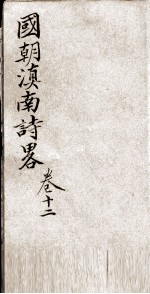 國朝滇南詩畧
卷十二